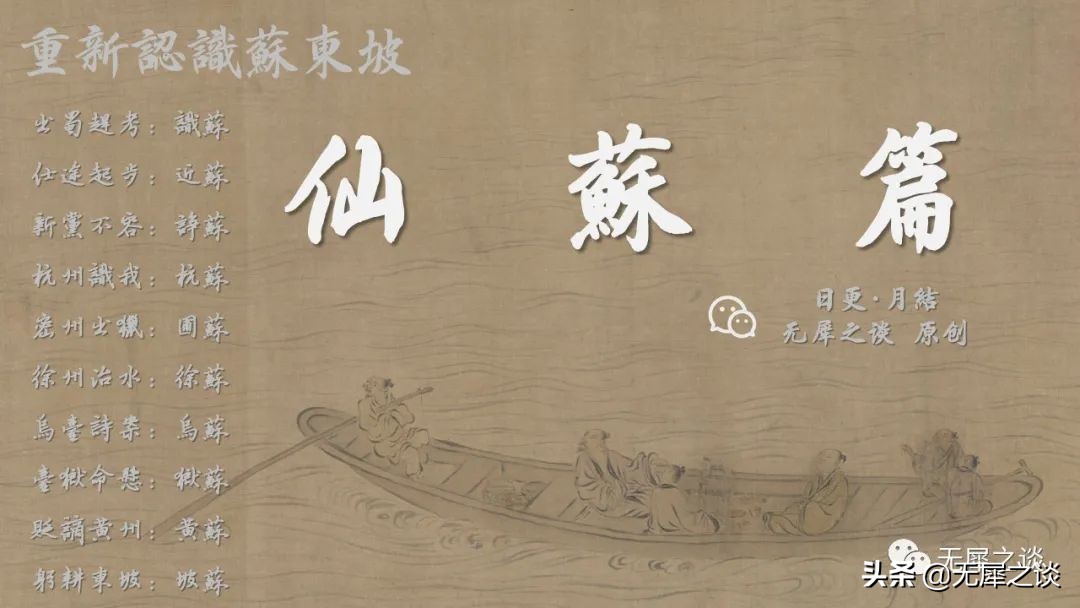 重新認識蘇東坡
出蜀趕考：識蘇
仕途起步：近蘇
新黨不容：詩蘇
杭州識我：杭蘇
密州出獵：圃蘇
徐州治水：徐蘇
烏臺詩案：烏蘇
臺獄命懸：獄蘇
貶謫黃州：黃蘇
躬耕東坡：坡蘇
仙蘇篇
日更·月結
无犀之谈 原创
无犀之谈
头条 @无犀之谈